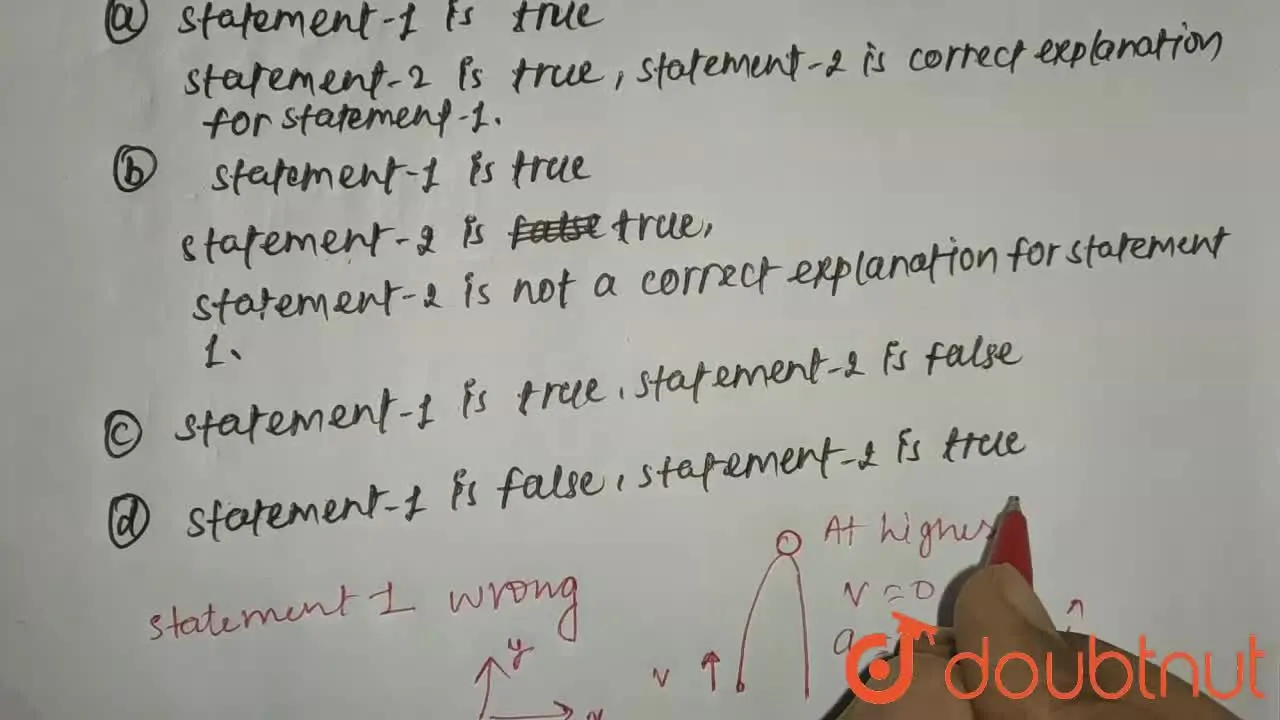 (a) statement-1 is true
statement-2 is true, statement-2 is correct explanation
for statement-1.
(b) statement-1 is true
statement-2 is true,
statement-2 is not a correct explanation for statement
1.
(c) statement-1 is true, statement-2 is false
(d) statement-1 is false, statement-2 is true
At highes
v=0
statement 1 wrong
y
v
a
doubtnut